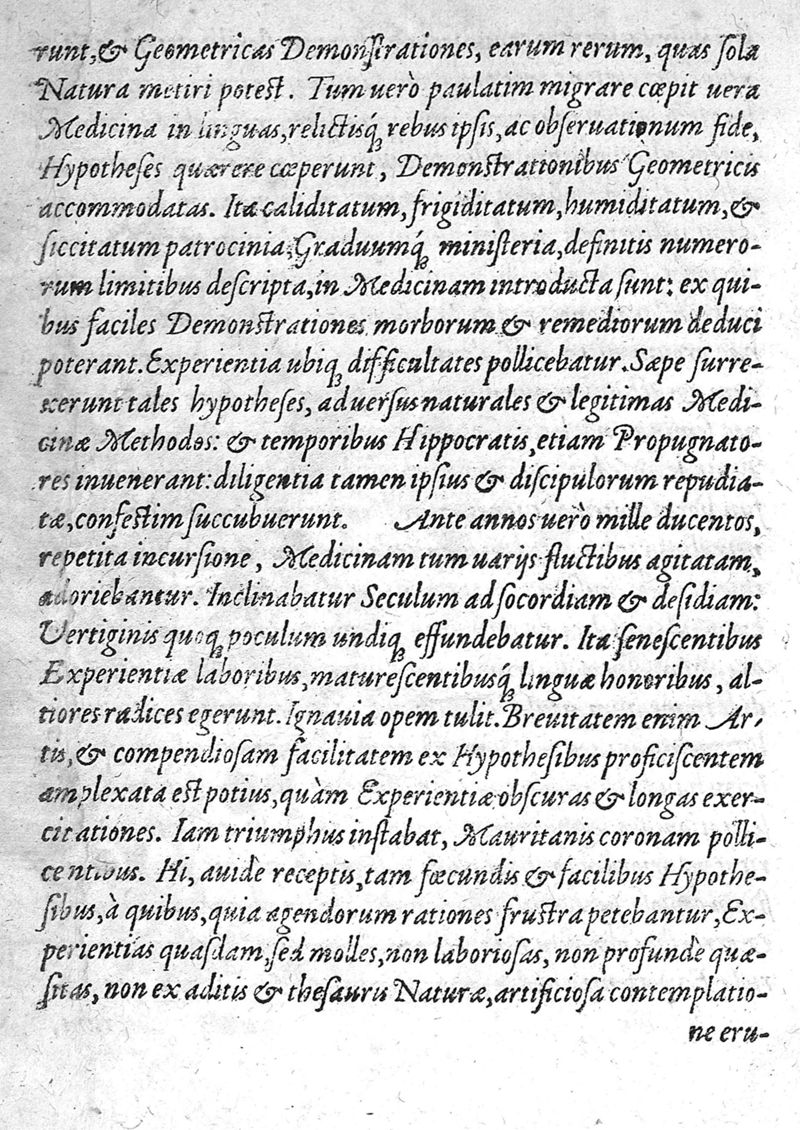 runt, & Geometricas Demonſtrationes, earum rerum, quas ſola
Natura metiri poteſt. Tum uerò paulatim migrare cœpit uera
Medicina in linguas, relictisq́ꝫ rebus ipſis, ac obſeruationum fide,
Hypotheſes quærere cœperunt, Demonſtrationibus Geometricis
accommodatas. Ita caliditatum, frigiditatum, humiditatum, &
ſiccitatum patrocinia, Graduumq́ꝫ miniſteria, definitis numero-
rum limitibus deſcripta, in Medicinam introducta ſunt: ex qui-
bus faciles Demonſtrationes morborum & remediorum deduci
poterant. Experientia ubiqꝫ difficultates pollicebatur. Sæpe ſurre-
xerunt tales hypotheſes, aduerſus naturales & legitimas Medi-
cinæ Methodos: & temporibus Hippocratis, etiam Propugnato-
res inuenerant: diligentia tamen ipſius & diſcipulorum repudia-
tæ, confeſtim ſuccubuerunt. Ante annos uerò mille ducentos,
repetita incurſione, Medicinam tum uarijs fluctibus agitatam,
adoriebantur. Inclinabatur Seculum ad ſocordiam & deſidiam:
Vertiginis quoqꝫ poculum undiqꝫ effundebatur. Ita ſeneſcentibus
Experientiæ laboribus, matureſcentibusq́ꝫ linguæ honoribus, al-
tiores radices egerunt. Ignauia opem tulit. Breuitatem enim Ar-
tis, & compendioſam facilitatem ex Hypotheſibus proficiſcentem
amplexata eſt potius, quàm Experientiæ obſcuras & longas exer-
citationes. Iam triumphus inſtabat, Mauritanis coronam polli-
centibus. Hi, auidè receptis, tam fœcundis & facilibus Hypothe-
ſibus, à quibus, quia agendorum rationes fruſtra petebantur, Ex-
perientias quaſdam, ſed molles, non laborioſas, non profundè quæ-
ſitas, non ex aditis & theſauris Naturæ, artificioſa contemplatio-
ne eru-